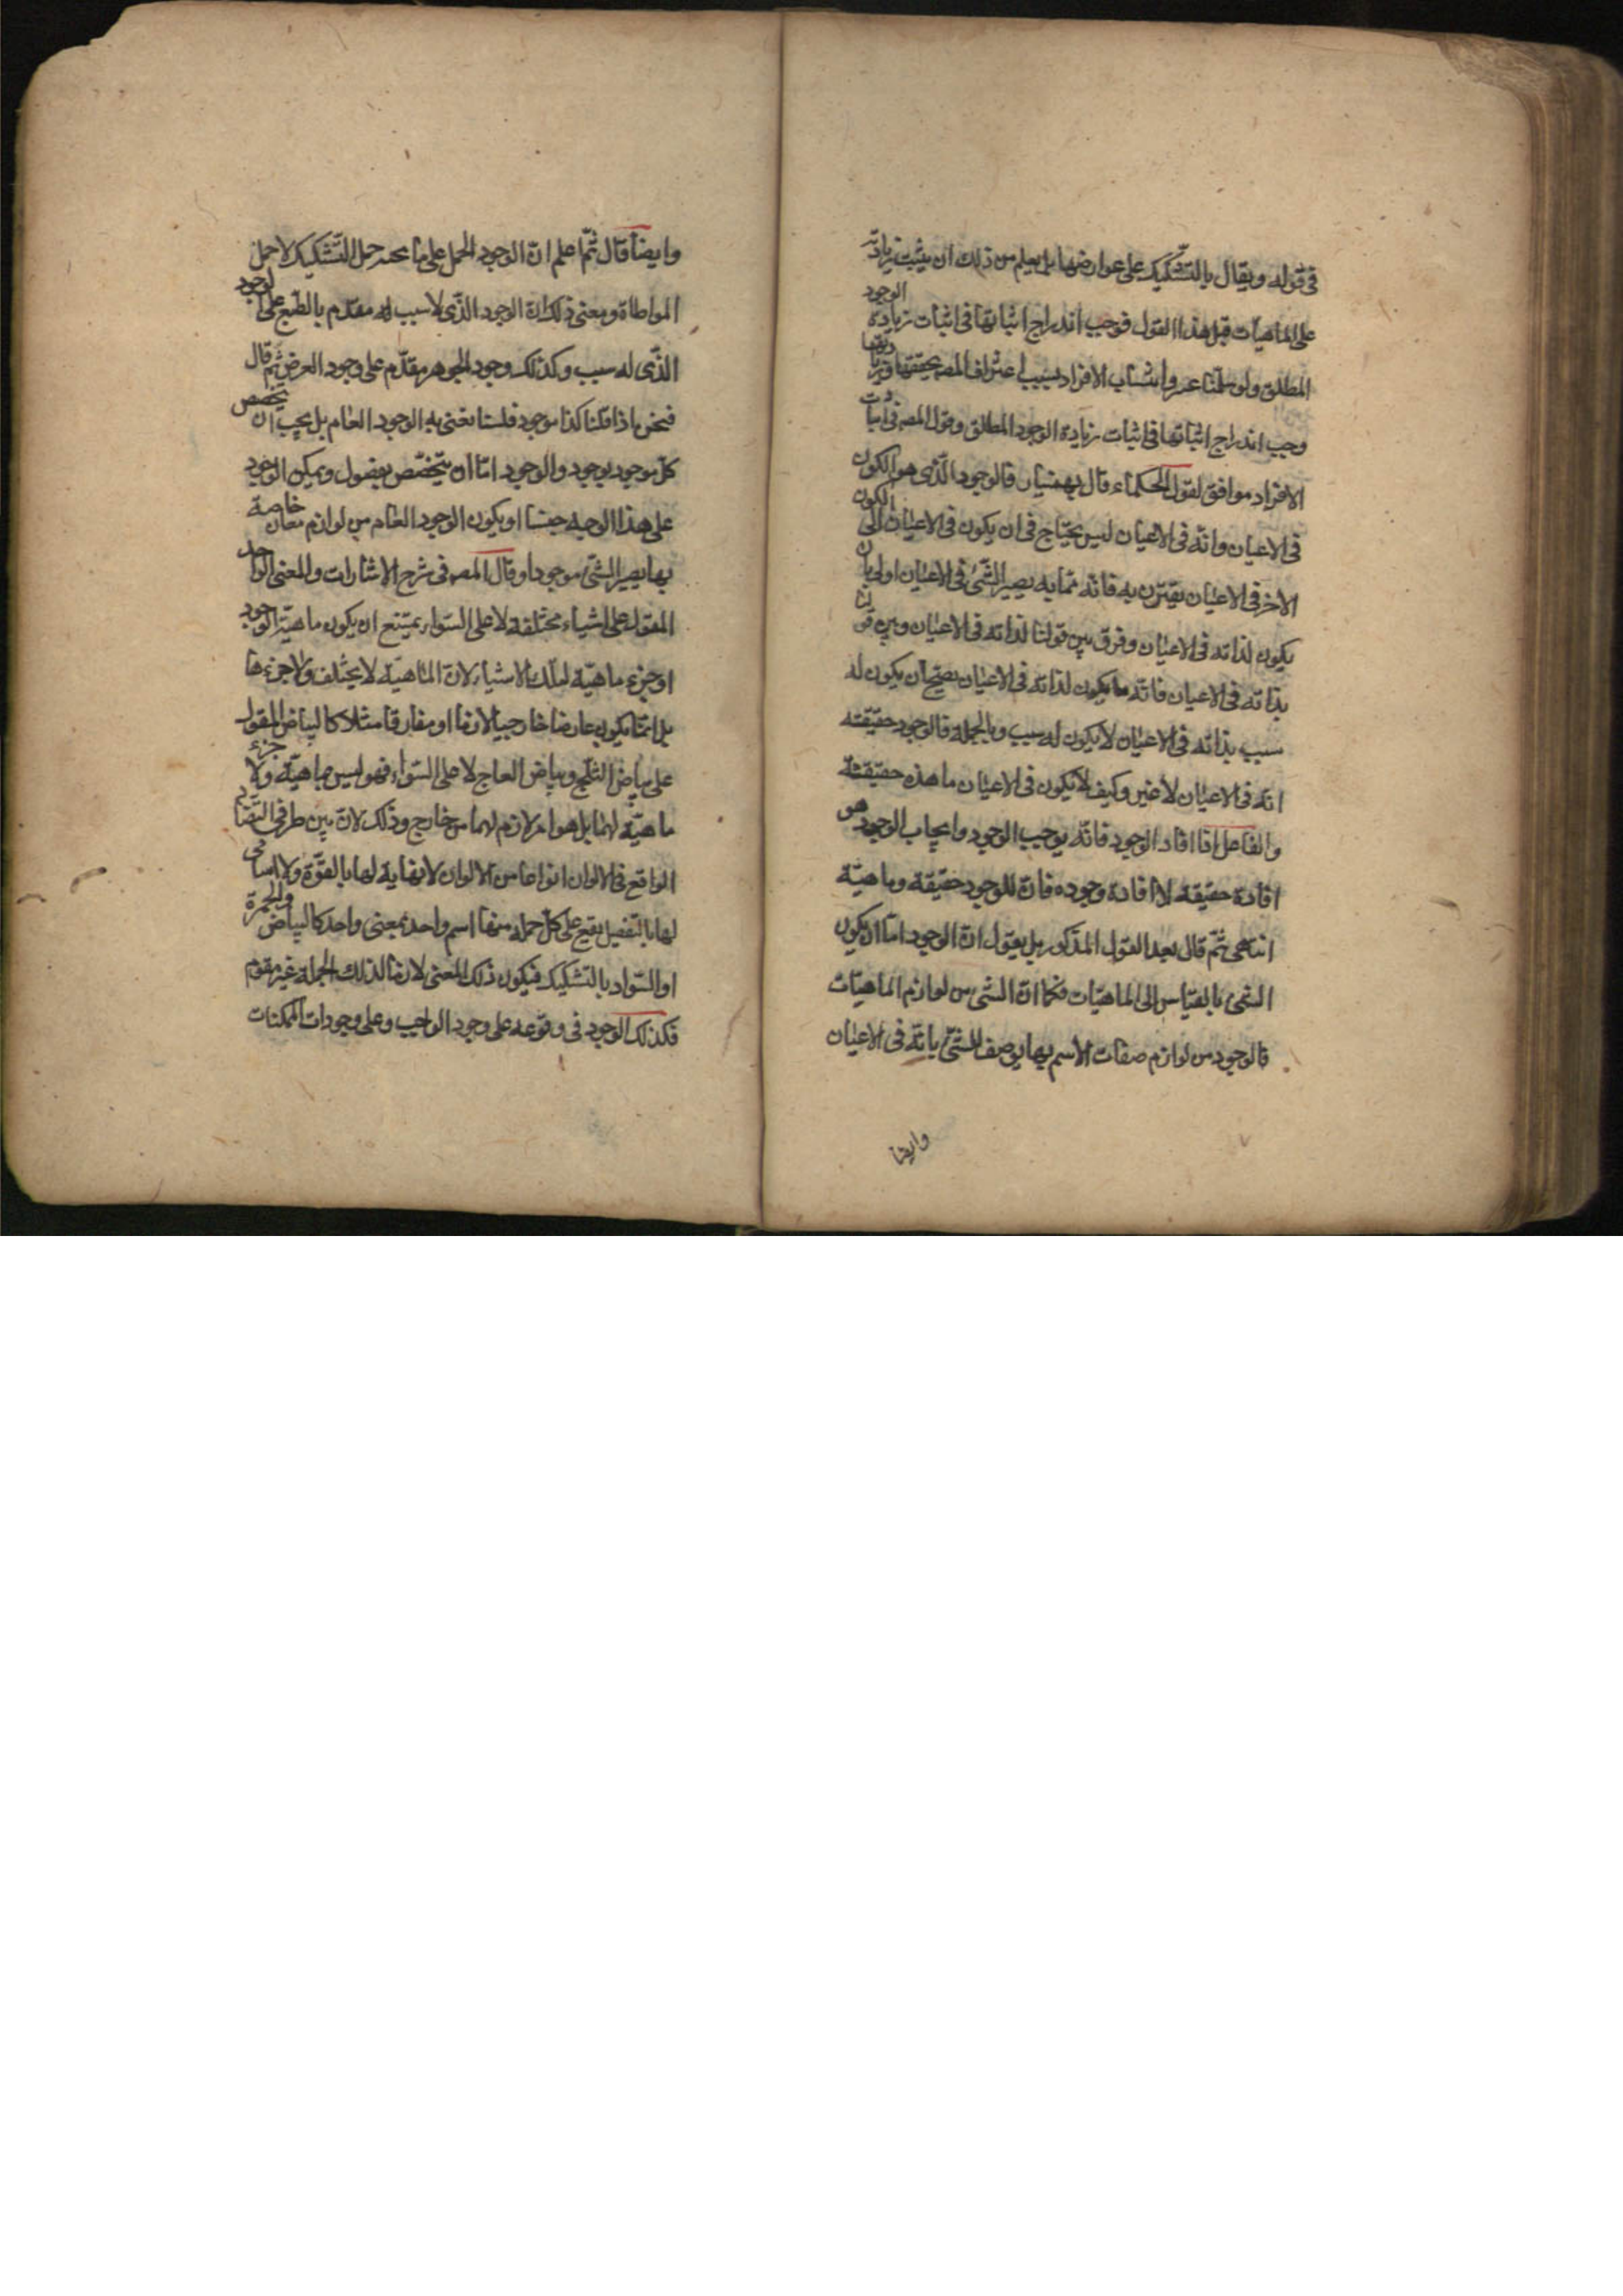 فى قوله ويقال بالتشكيك على عوارضها بل يعلم من ذلك ان يثبت زيادة
على الماهيات قبل هذا القول فوجب اندراج اثباتها فى اثبات زيادة الوجود
المطلق ولو سلمنا عدم انتساب الافراد بسبب اعتراف المصـ بتحققها وزيادتها
وجب اندراج اثباتها فى اثبات زيادة الوجود المطلق وقول المصـ فى اثبات
الافراد موافق لقول الحكماء قال بهمنيار فالوجود الذى هو الكون
فى الاعيان وانه فى الاعيان ليس يحتاج فى ان يكون فى الاعيان الى الكون
الاخر فى الاعيان يقترن به فانه مما به يصير الشئ فى الاعيان اولى بان
يكون لذاته فى الاعيان وفرق بين قولنا لذاته فى الاعيان وبين قولنا
بذاته فى الاعيان فانه ما يكون لذاته فى الاعيان يصح ان يكون له
سبب بذاته فى الاعيان لا يكون له سبب وبالجملة فالوجود حقيقته
انه فى الاعيان لا غير وكيف لا يكون فى الاعيان ما هذه حقيقته
والفاعل اذا افاد الوجود فانه يوجب الوجود وايجاب الوجود هو
افادة حقيقة لا افادة وجوده فان للوجود حقيقة وماهية
انتهى ثم قال بعد القول المذكور بل يقول ان الوجود اما ان يكون
الشى بالقياس الى الماهيات فكما ان الشى من لوازم الماهيات
فالوجود من لوازم صفات الاسم بها يوصف الشئ بانه فى الاعيان
وايضا
وايضا قال ثم اعلم ان الوجود الحمل على ما تحته حمل التشكيك لا حمل
المواطاة ومعنى ذلك ان الوجود الذى لا سبب له مقدم بالطبع على الوجود
الذى له سبب وكذلك وجود الجوهر مقدم على وجود العرض ثم قال
فنحن اذا قلنا كذا موجود فلسنا نعنى به الوجود العام بل يجب ان يتخصص
كل موجود بوجود والوجود اما ان يتخصص بفصول ويمكن الوجود
على هذا الوجه جنسا او يكون الوجود العام من لوازم معان خاصة
بها يصير الشئ موجودا وقال المصـ فى شرح الاشارات والمعنى الواحد
المقول على اشياء مختلفة لا على السواء يمتنع ان يكون ماهية الوجود
او جزء ماهية لتلك الاشياء لان الماهية لا يختلف ولا جزءها
بل انما يكون عارضا خارجيا لازما او مفارقا مثلا كالبياض المقول
على بياض الثلج وبياض العاج لا على السواء فهو ليس بماهية ولا جزء
ماهية لهما بل هو امر لازم لهما من خارج وذلك لان بين طرفى التضاد
الواقع فى الالوان انواعا من الالوان لا نهاية لها بالقوة ولا اسامى
لها بالتفصيل يقع على كل جملة منها اسم واحد بمعنى واحد كالبياض والحمرة
او السواد بالتشكيك فيكون ذلك المعنى لازما لتلك الجملة غير مقوم
فكذلك الوجود فى وقوعه على وجود الواجب وعلى وجودات الممكنات